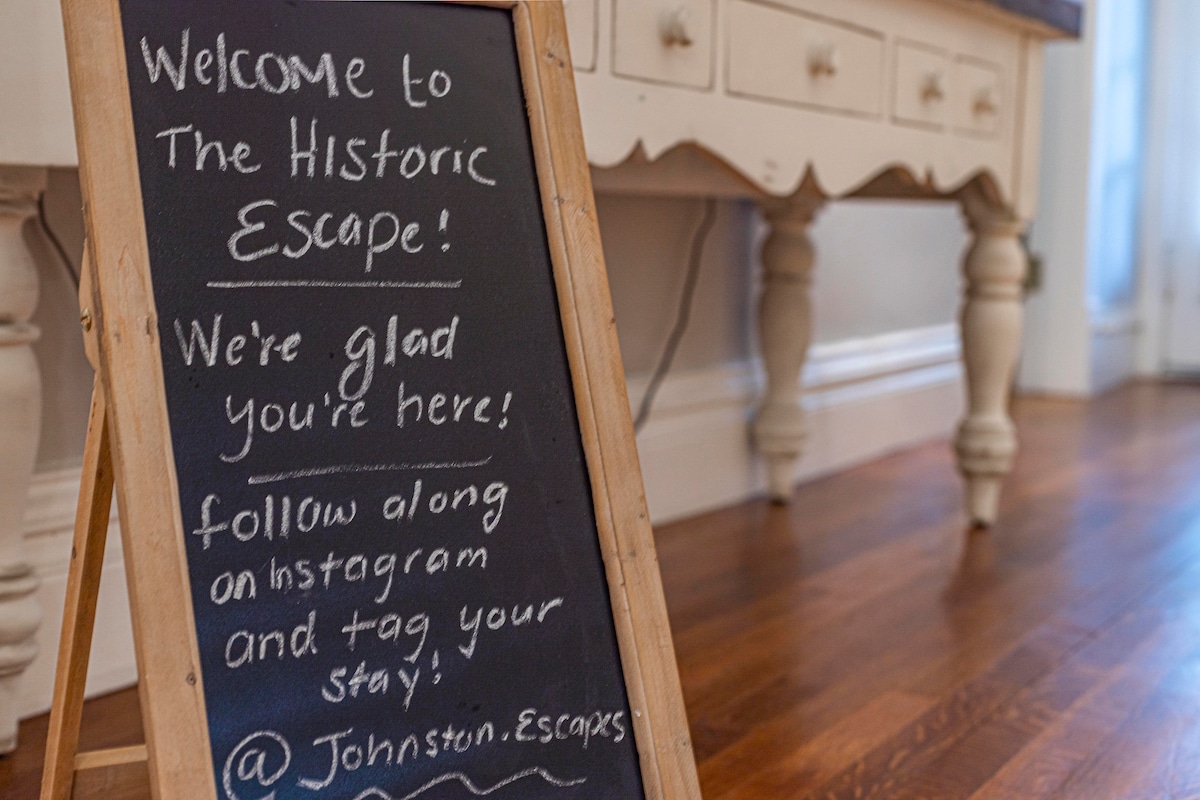 Welcome to
The Historic
Escape!
We're glad
you're here!
follow along
on Instagram
and tag your
stay!
@Johnston.Escapes